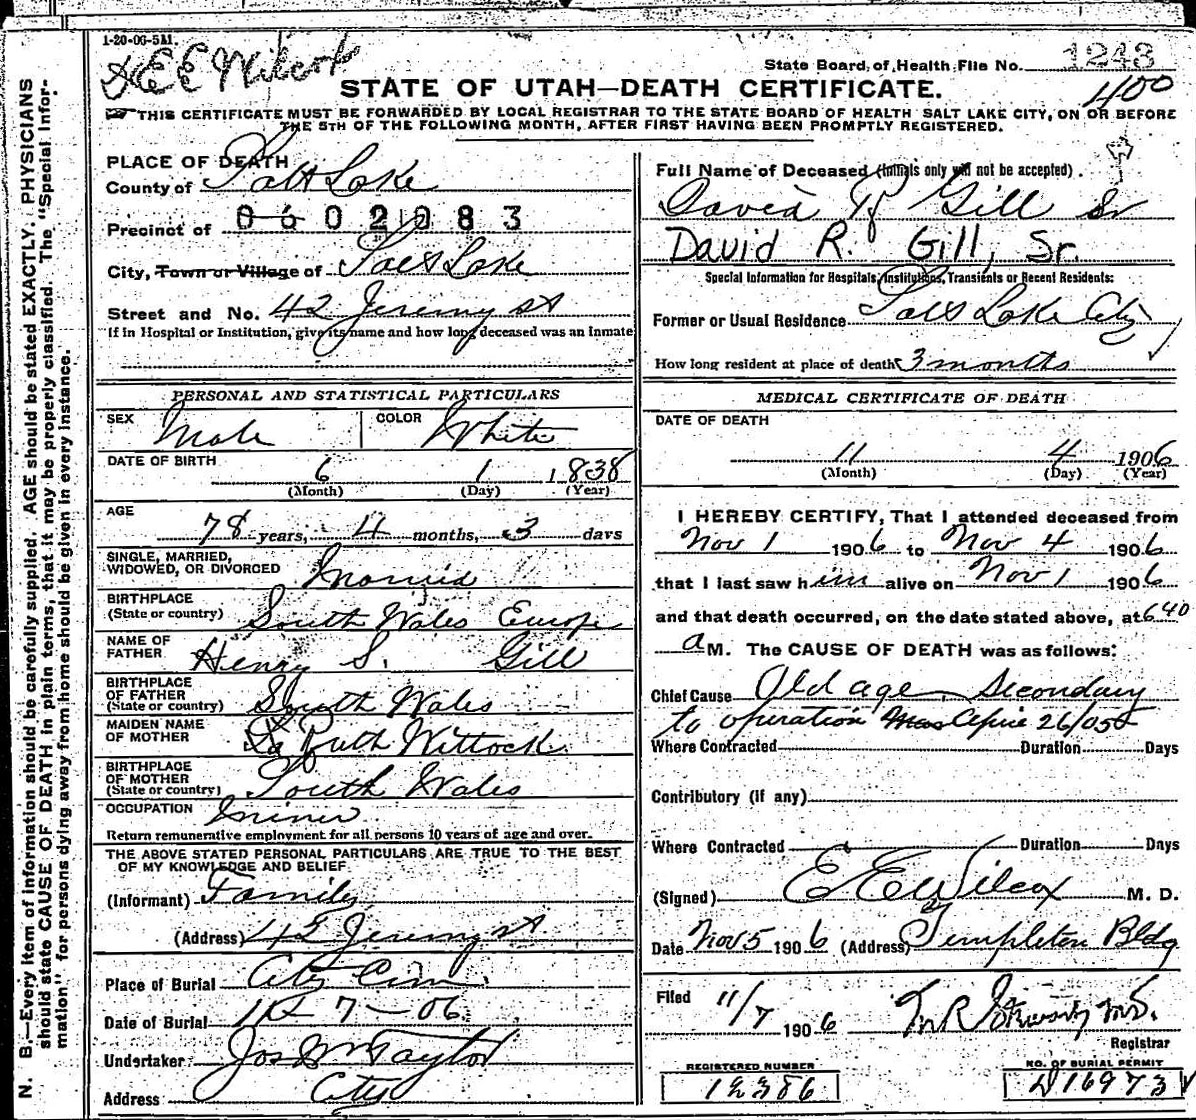 1-20-06-5M.
E E Wilcox
State Board of Health File No. 1243
400
STATE OF UTAH—DEATH CERTIFICATE.
THIS CERTIFICATE MUST BE FORWARDED BY LOCAL REGISTRAR TO THE STATE BOARD OF HEALTH SALT LAKE CITY, ON OR BEFORE
THE 5TH OF THE FOLLOWING MONTH, AFTER FIRST HAVING BEEN PROMPTLY REGISTERED.
N. B.—Every item of information should be carefully supplied. AGE should be stated EXACTLY. PHYSICIANS
should state CAUSE OF DEATH in plain terms, that it may be properly classified. The "Special Infor-
mation" for persons dying away from home should be given in every instance.
PLACE OF DEATH
County of Salt Lake
Precinct of 0602083
City, Town or Village of Salt Lake
Street and No. 42 Jeremy st
If in Hospital or Institution, give its name and how long deceased was an inmate
PERSONAL AND STATISTICAL PARTICULARS
SEX Male COLOR White
DATE OF BIRTH
6 1 1838
(Month) (Day) (Year)
AGE
78 years, 4 months, 3 days
SINGLE, MARRIED,
WIDOWED, OR DIVORCED Married
BIRTHPLACE
(State or country) South Wales Europe
NAME OF
FATHER Henry S. Gill
BIRTHPLACE
OF FATHER
(State or country) South Wales
MAIDEN NAME
OF MOTHER Ruth Wittock
BIRTHPLACE
OF MOTHER
(State or country) South Wales
OCCUPATION Miner
Return remunerative employment for all persons 10 years of age and over.
THE ABOVE STATED PERSONAL PARTICULARS ARE TRUE TO THE BEST
OF MY KNOWLEDGE AND BELIEF
(Informant) Family
(Address) 42 Jeremy st
Place of Burial City Cem.
Date of Burial 11 - 7 - 06
Undertaker Jos Wm Taylor
Address City
Full Name of Deceased (Initials only will not be accepted).
David R Gill Sr
David R. Gill, Sr.
Special Information for Hospitals, Institutions, Transients or Recent Residents:
Former or Usual Residence Salt Lake City
How long resident at place of death 3 months
MEDICAL CERTIFICATE OF DEATH
DATE OF DEATH
11 4 1906
(Month) (Day) (Year)
I HEREBY CERTIFY, That I attended deceased from
Nov 1 1906 to Nov 4 1906
that I last saw him alive on Nov 1 1906
and that death occurred, on the date stated above, at 640
a M. The CAUSE OF DEATH was as follows:
Chief Cause Old age, Secondary
to operation April 26/05
Where Contracted Duration Days
Contributory (if any)
Where Contracted Duration Days
(Signed) E E Wilcox M. D.
Date Nov 5 1906 (Address) Templeton Bldg
Filed 11/7 1906
Registrar
REGISTERED NUMBER
12386
NO. OF BURIAL PERMIT
D 16973